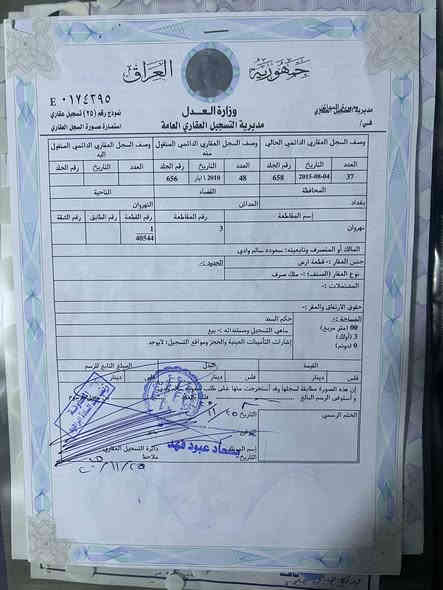 جمهورية العراق
وزارة العدل
مديرية التسجيل العقاري العامة
E ٠١٧٤٢٩٥
نموذج رقم (٢٥) تسجيل عقاري
استمارة صورة السجل العقاري
مديرية التسجيل العقاري
في/
وصف السجل العقاري الدائمي الحالي
وصف السجل العقاري الدائمي المنقول منه
وصف السجل العقاري الدائمي المنقول اليه
العدد التاريخ رقم الجلد العدد التاريخ رقم الجلد العدد التاريخ رقم الجلد
37 2015-08-04 658 48 2010 ايار 656
المحافظة القضاء الناحية
بغداد المدائن النهروان
إسم المقاطعة رقم المقاطعة رقم القطعة رقم الطابق رقم الشقة
نهروان 3 1
40544
المالك أو المتصرف وتابعيته: سعوده سالم وادي
جنس العقار :- قطعة ارض
الحدود :-
نوع العقار (الصنف) :- ملك صرف
المشتملات :-
حقوق الارتفاق والعقر :-
المساحة :-
00 (متر مربع)
3 (أولك)
0 (دونم)
حكم السند
ماهي التسجيل ومستنداته :- بيع
إشارات التأمينات العينية والحجز ومواقع التسجيل: لايوجد
القيمة البدل المبلغ التابع للرسم
فلس دينار فلس دينار فلس دينار
إن هذه الصورة مطابقة لسجلها وقد أستخرجت منها على طلب
و أستوفى الرسم البالغ
الختم الرسمي
التاريخ
التوقيع
بسعاد عبود فهد
ذاكرة التسجيل العقاري
ملاحظ